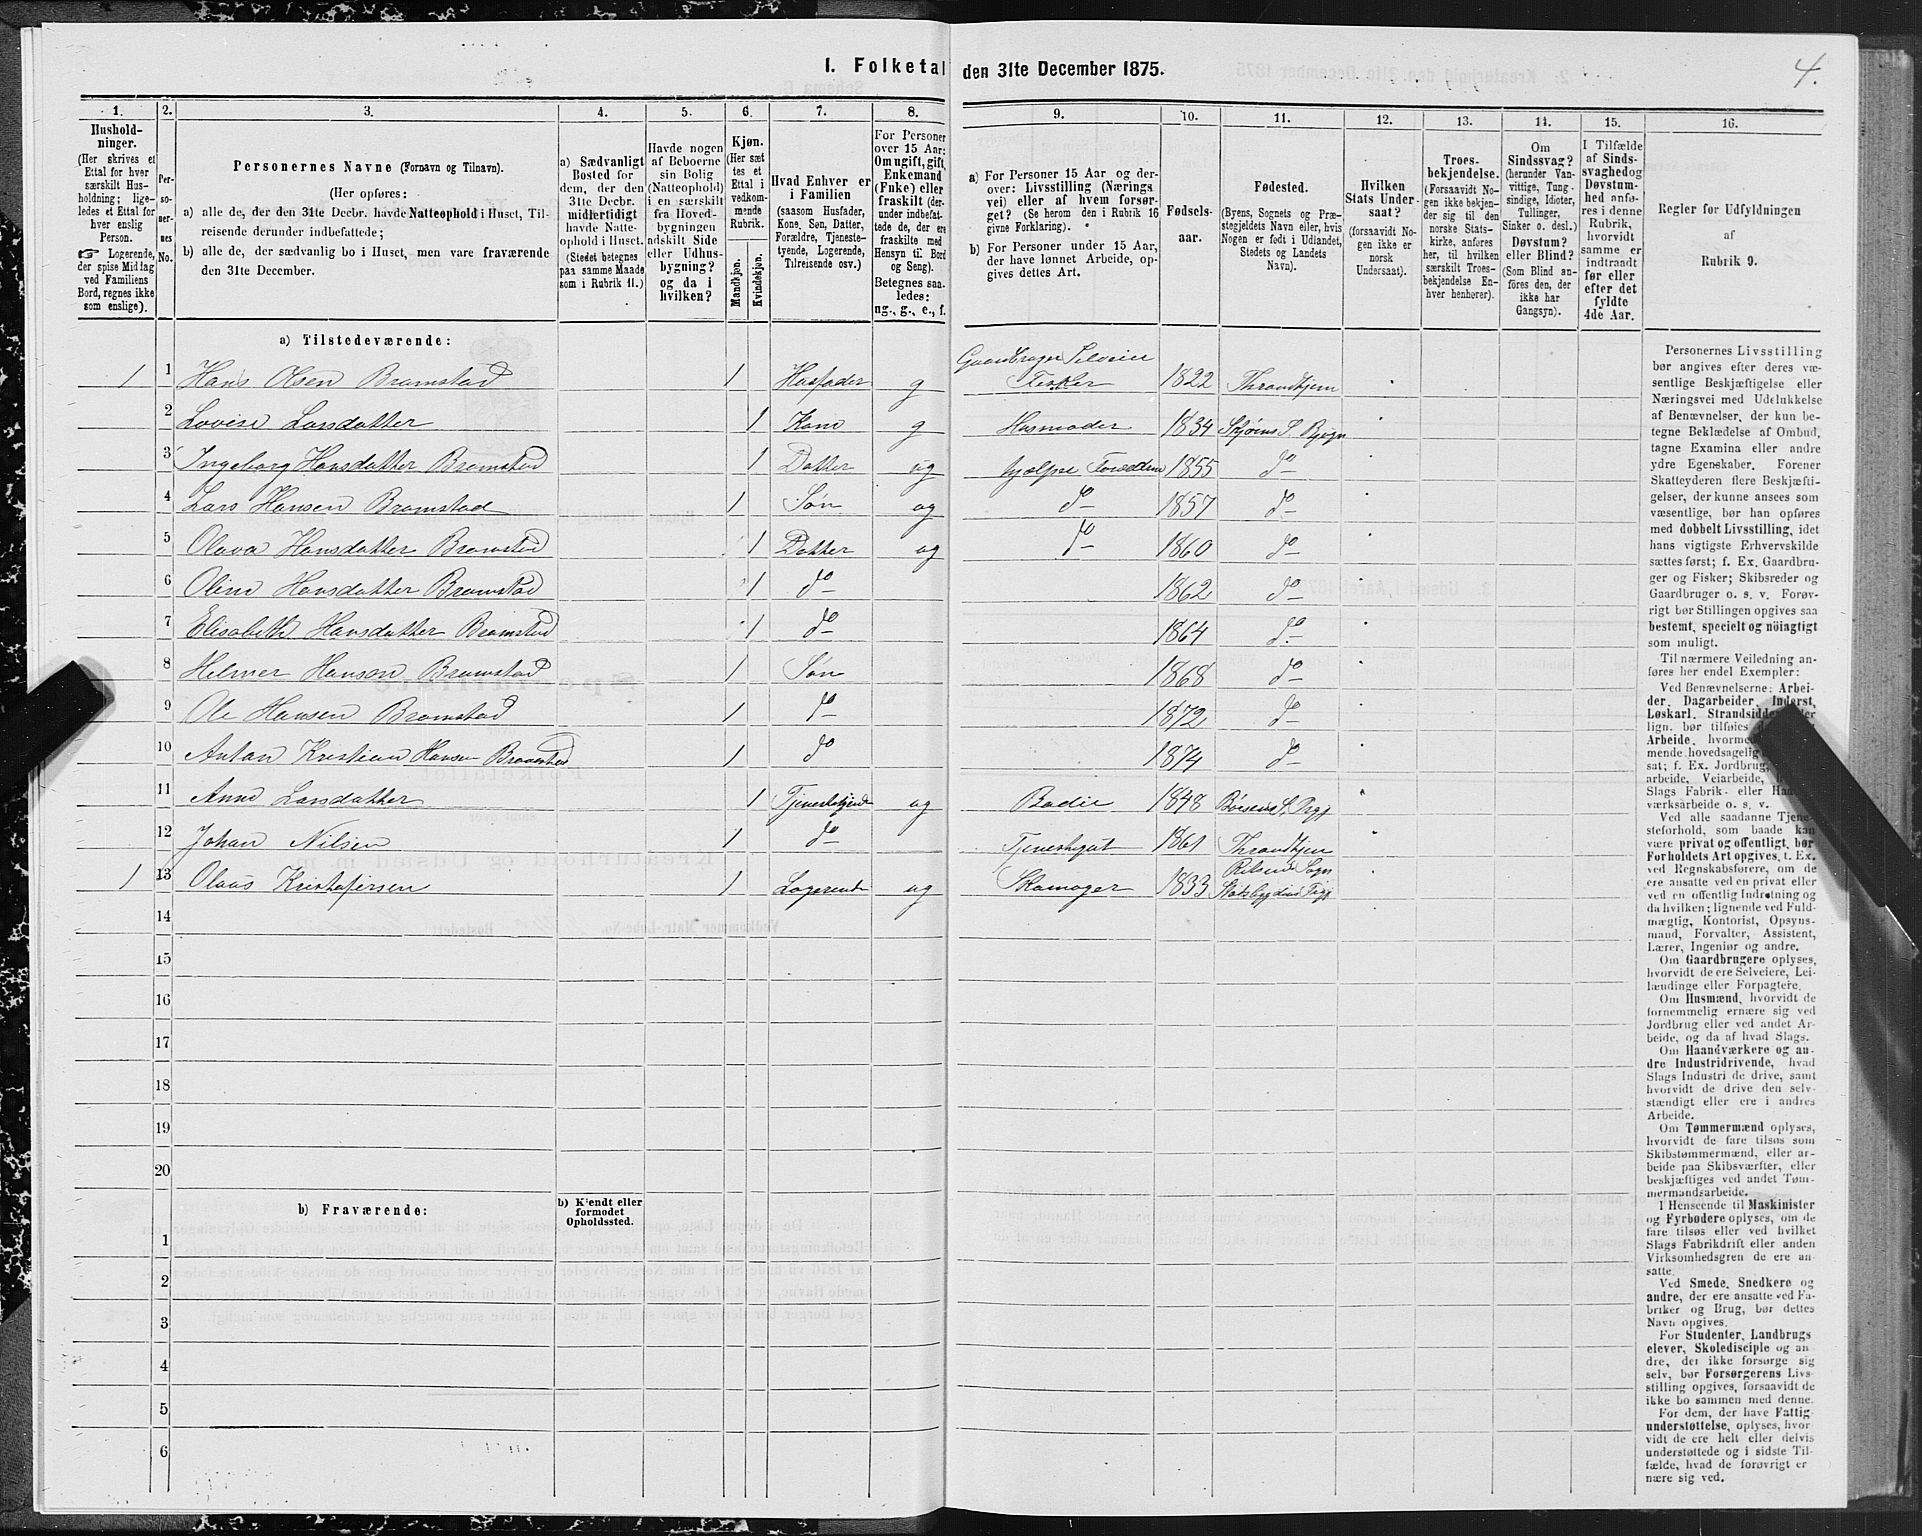 I. Folketal den 31te December 1875.
4.
1.
Husholdninger.
(Her skrives et
Ettal for hver
særskilt Husholdning;
ligeledes et Ettal for
hver enslig
Person.
☞ Logerende,
der spise Middag
ved Familiens
Bord, regnes ikke
som enslige).
2.
Personernes
No.
3.
Personernes Navne (Fornavn og Tilnavn).
(Her opføres:
a) alle de, der den 31te Decbr. havde Natteophold i Huset, Tilreisende derunder indbefattede;
b) alle de, der sædvanlig bo i Huset, men vare fraværende
den 31te December.
4.
a) Sædvanligt
Bosted for
dem, der den
31te Decbr.
midlertidigt
havde Natteophold i Huset.
(Stedet betegnes
paa samme Maade
som i Rubrik 11.)
5.
Havde nogen
af Beboerne
sin Bolig
(Natteophold)
i en særskilt
fra Hovedbygningen
adskilt Side
eller Udhusbygning?
og da i
hvilken?
6.
Kjøn.
(Her sættes et
Ettal i
vedkommende
Rubrik.
Mandkjøn.
Kvindekjøn.
7.
Hvad Enhver er
i Familien
(saasom Husfader,
Kone, Søn, Datter,
Forældre, Tjenestetyende, Logerende,
Tilreisende osv.)
8.
For Personer
over 15 Aar:
Om ugift, gift,
Enkemand
(Enke) eller
fraskilt
Betegnes saaledes:
ug., g., e., f.
9.
a) For Personer 15 Aar og derover: Livsstilling (Næringsvei) eller af hvem forsørget? (Se herom den i Rubrik 16
givne Forklaring).
b) For Personer under 15 Aar,
der have lønnet Arbeide, opgives dettes Art.
10.
Fødselsaar.
11.
Fødested.
(Byens, Sognets og Præstegjeldets Navn eller, hvis
Nogen er født i Udlandet,
Stedets og Landets
Navn).
12.
Hvilken
Stats Undersaat?
(forsaavidt Nogen ikke er
norsk
Undersaat).
13.
Troesbekjendelse.
(Forsaavidt Nogen ikke bekjender sig til den
norske Statskirke, anføres
her, til hvilken
særskilt Troesbekjendelse Enhver henhører).
14.
Om
Sindssvag?
(herunder Vanvittige, Tungsindige, Idioter,
Tullinger,
Sinker o. desl.)
Døvstum?
eller Blind?
(Som Blind anføres den, der
ikke har
Gangsyn).
15.
I Tilfælde
af Sindssvaghed og
Døvstumhed anføres i denne
Rubrik,
hvorvidt
samme er
indtraadt
før eller
efter det
fyldte
4de Aar.
16.
Regler for Udfyldningen
af
Rubrik 9.
a) Tilstedeværende:
1 1 Hans Olsen Bramstad 1 Husfader g Gaardbruger Selveier Fisker 1822 Throndhjem
2 Lovise Larsdatter 1 Kone g Husmoder 1834 Skjørens S. Bjugn
3 Ingeborg Hansdatter Bramstad 1 Datter ug hjelper Forældrene 1855 do
4 Lars Hansen Bramstad 1 Søn ug do 1857 do
5 Olava Hansdatter Bramstad 1 Datter ug do 1860 do
6 Oline Hansdatter Bramstad 1 do 1862 do
7 Elisabeth Hansdatter Bramstad 1 do 1864 do
8 Helmer Hansen Bramstad 1 Søn 1868 do
9 Ole Hansen Bramstad 1 do 1872 do
10 Anton Kristian Hansen Bramstad 1 do 1874 do
11 Anne Larsdatter 1 Tjenestetyende ug Budeie 1848
12 Johan Nilsen 1 do Tjenestegut 1861 Throndhjem
1 13 Olaus Kristofersen 1 Logerende ug Skomager 1833 Sogn
14
15
16
17
18
19
20
b) Fraværende:
b) Kjendt eller
formodet
Opholdssted.
1
2
3
4
5
6
Personernes Livsstilling
bør angives efter deres væsentlige Beskjæftigelse eller
Næringsvei med Udelukkelse
af Benævnelser, der kun betegne Beklædelse af Ombud,
tagne Examina eller andre
ydre Egenskaber. Forener
Skatteyderen flere Beskjæftigelser, der kunne ansees som
væsentlige, bør han opføres
med dobbelt Livsstilling, idet
hans vigtigste Erhvervskilde
sættes først; f. Ex. Gaardbruger og Fisker; Skibsreder og
Gaardbruger o. s. v. Forøvrigt bør Stillingen opgives saa
bestemt, specielt og nöiagtigt
som muligt.
Til nærmere Veiledning anføres her endel Exempler:
Ved Benævnelserne: Arbeider, Dagarbeider, Inderst,
Løskarl, Strandsidder eller
lign. bør tilføies
Arbeide,
Slags Fabrik- eller Haandværksarbeide o. s. v.
Ved alle saadanne Tjenesteforhold, som baade kan
være privat og offentligt, bør
Forholdets Art opgives, t. Ex.
ved Regnskabsførere, om de
ere ansatte ved en privat eller
ved en offentlig Indretning og
da hvilken; lignende ved Fuldmægtig, Kontorist, Opsynsmand, Forvalter, Assistent,
Lærer, Ingeniør og andre.
Om Gaardbrugere oplyses,
hvorvidt de ere Selveiere, Leilændinge eller Forpagtere.
Om Husmænd, hvorvidt de
fornemmelig ernære sig ved
Jordbrug eller ved andet Arbeide, og da af hvad Slags.
Om Haandværkere og andre Industridrivende, hvad
Slags Industri de drive, samt
hvorvidt de drive den selvstændigt eller ere i andres
Arbeide.
Om Tømmermænd oplyses,
hvorvidt de fare tilsøs som
Skibstømmermænd, eller arbeide paa Skibsværfter, eller
beskjæftiges ved andet Tømmermandsarbeide.
I Henseende til Maskinister
og Fyrbødere oplyses, om de
fare tilsøs eller ved hvilket
Slags Fabrikdrift eller anden
Virksomhedsgren de ere ansatte.
Ved Smede, Snedkere og
andre, der ere ansatte ved Fabriker og Brug, bør dettes
Navn opgives.
For Studenter, Landbrugselever, Skoledisciple og andre, der ikke forsørge sig
selv, bør Forsørgerens Livsstilling opgives, forsaavidt de
ikke bo sammen med denne.
For dem, der have Fattigunderstøttelse, oplyses, hvorvidt de ere helt eller delvis
understøttede og i sidste Tilfælde, hvad de forøvrigt ernære sig ved.